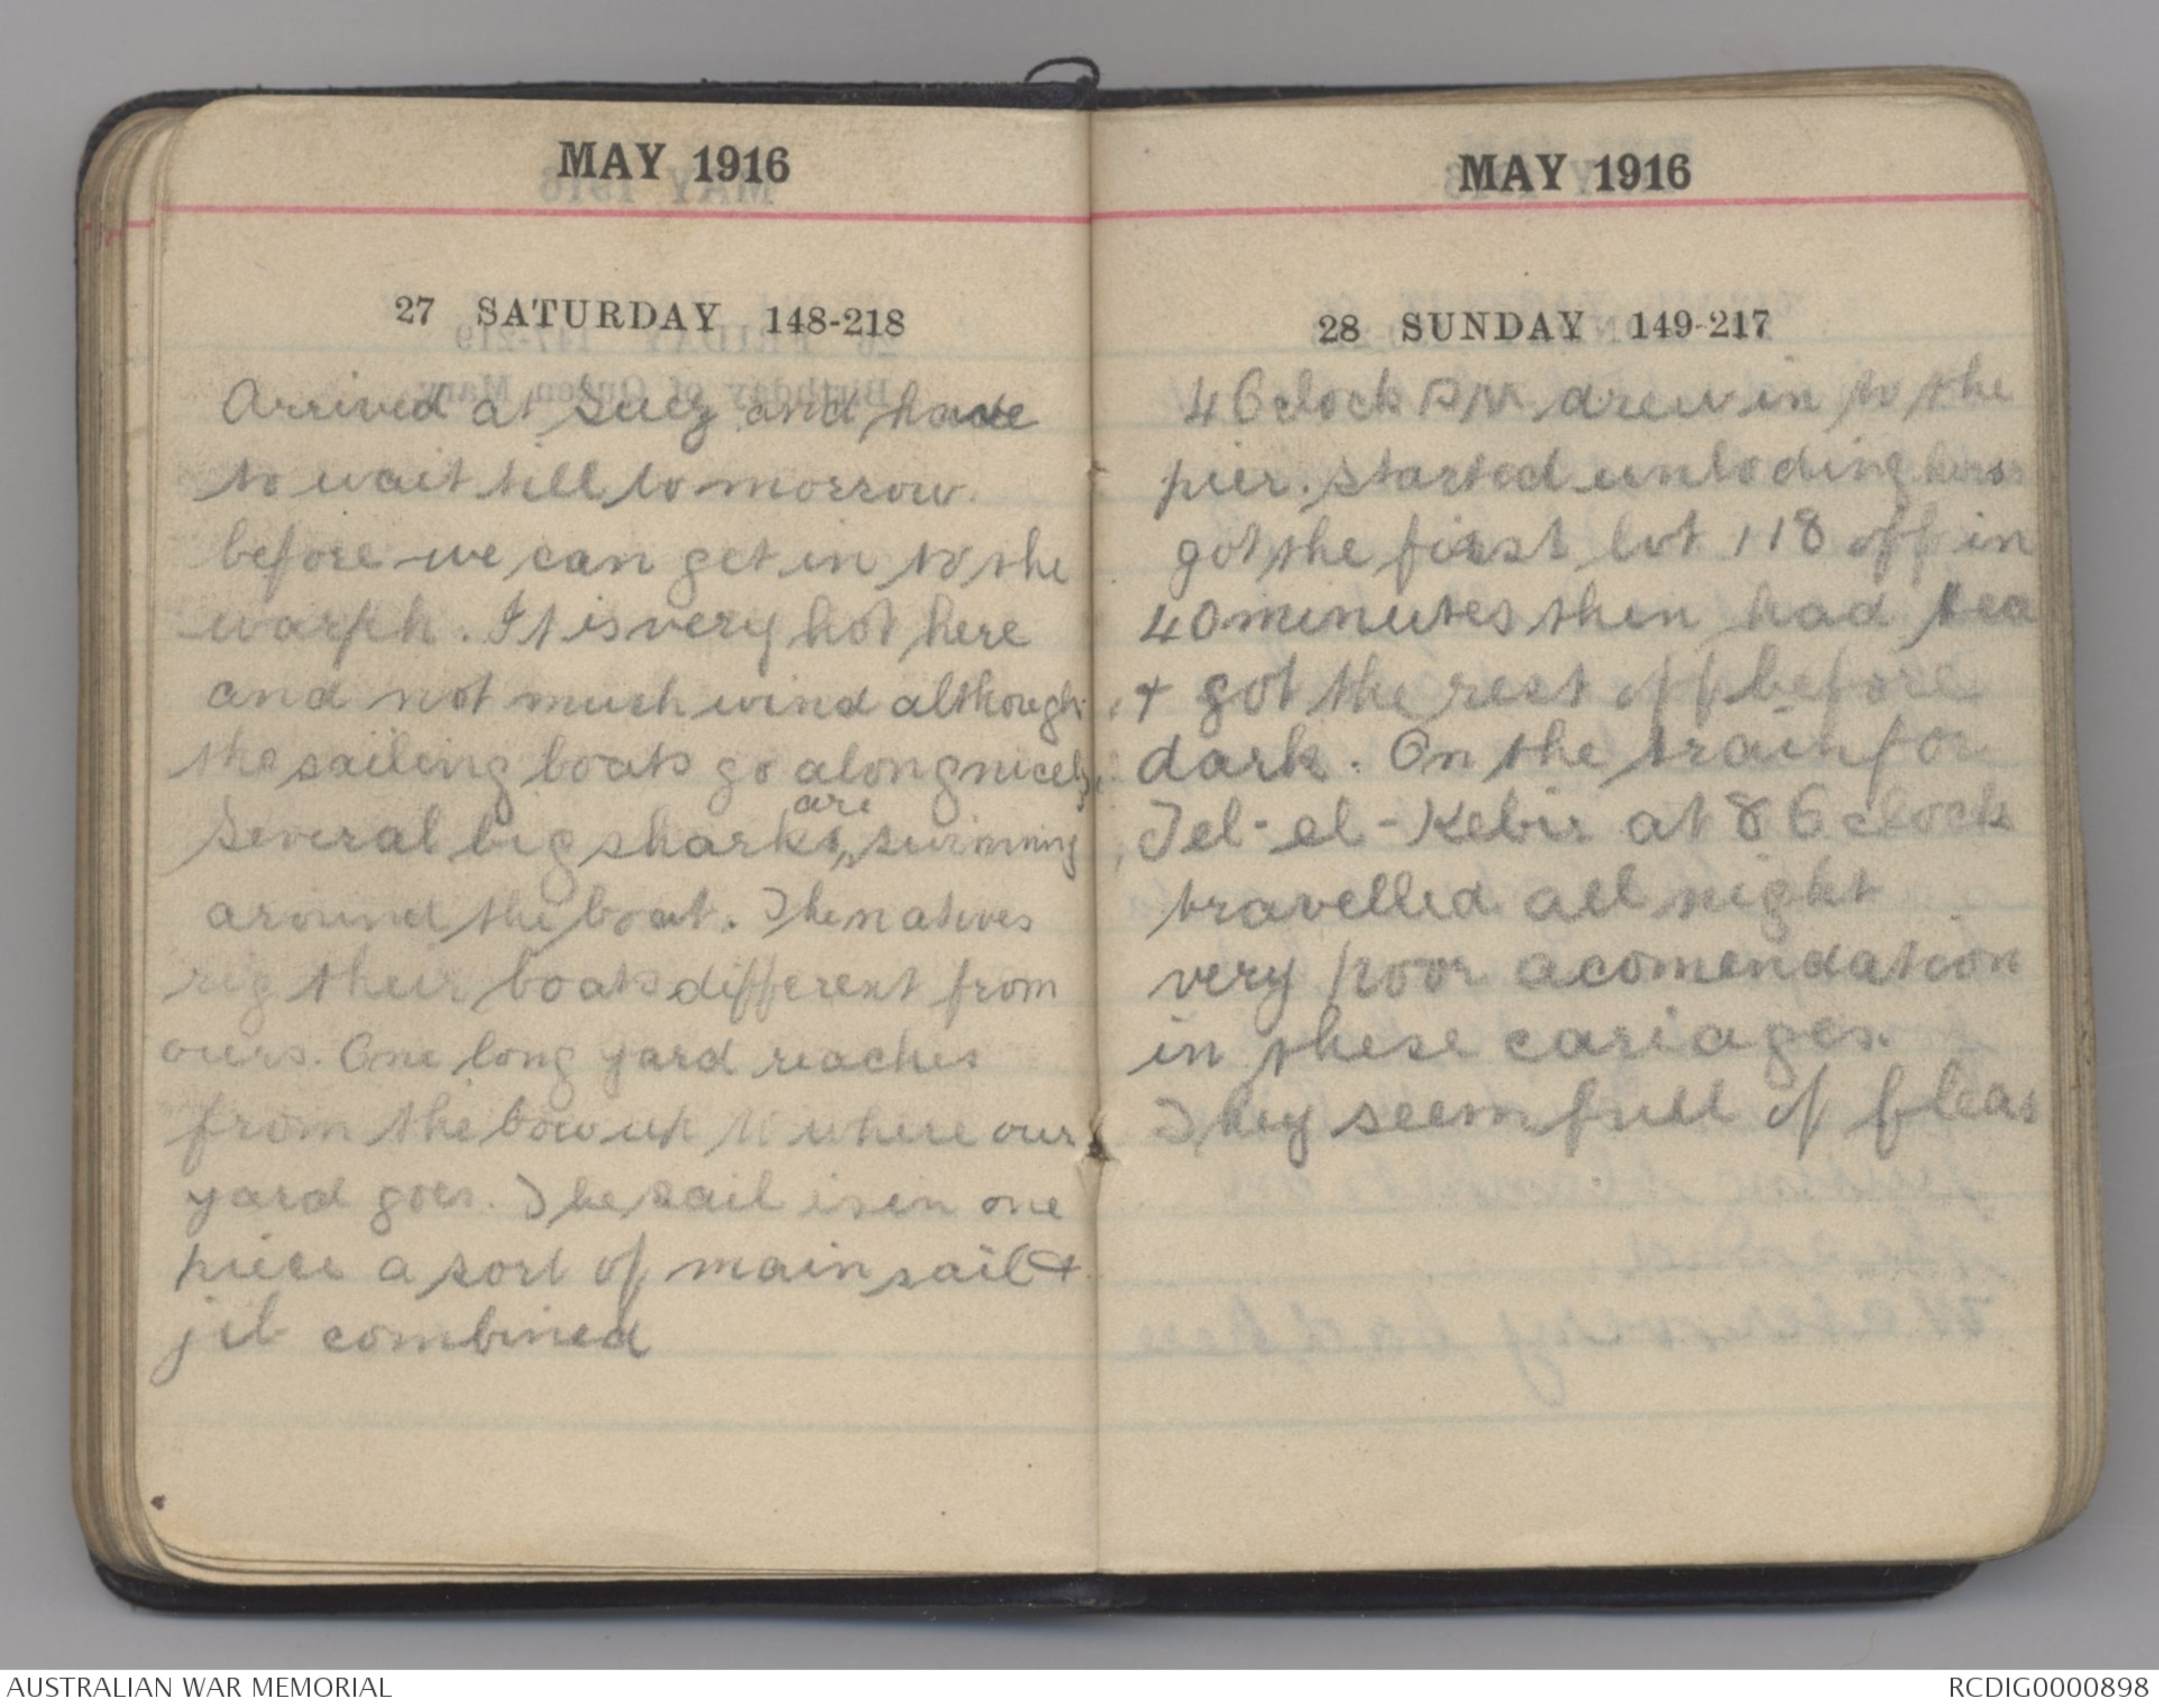 MAY 1916
27 SATURDAY 148-218
Arrived at Suez and have
to wait till to morrow.
before we can get in to the
warph. It is very hot here
and not much wind although
the sailing boats go along nicely,
Several big sharks are swimming
around the boat. The natives
rig their boats different from
ours. One long yard reaches
from the bow up to where our
yard goes. The sail is in one
piece a sort of main sail &
jib combined
MAY 1916
28 SUNDAY 149-217
4 Oclock PM drew in to the
pier. started unloding
got the first lot 118 off in
40 minutes then had tea
+ got the rest off before
dark. On the train for
Tel-el-Kebir at 8 Oclock
travelled all night
very poor acomendation
in these cariages.
They seem full of fleas
AUSTRALIAN WAR MEMORIAL
RCDIG0000898